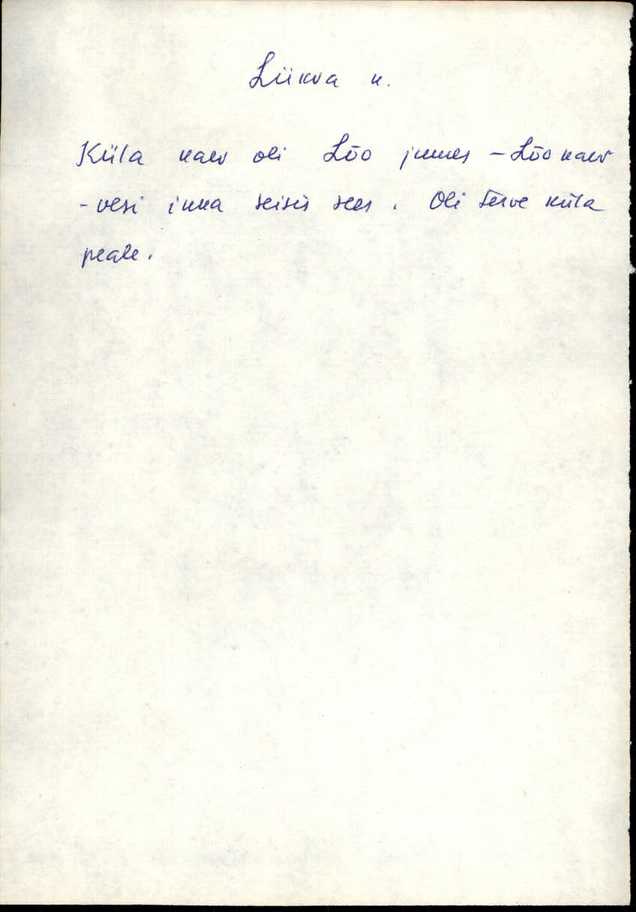 Liikva k.
Küla kaev oli Lõo juures – Lõo kaev
- vesi ikka seisis sees. Oli terve küla
peale.